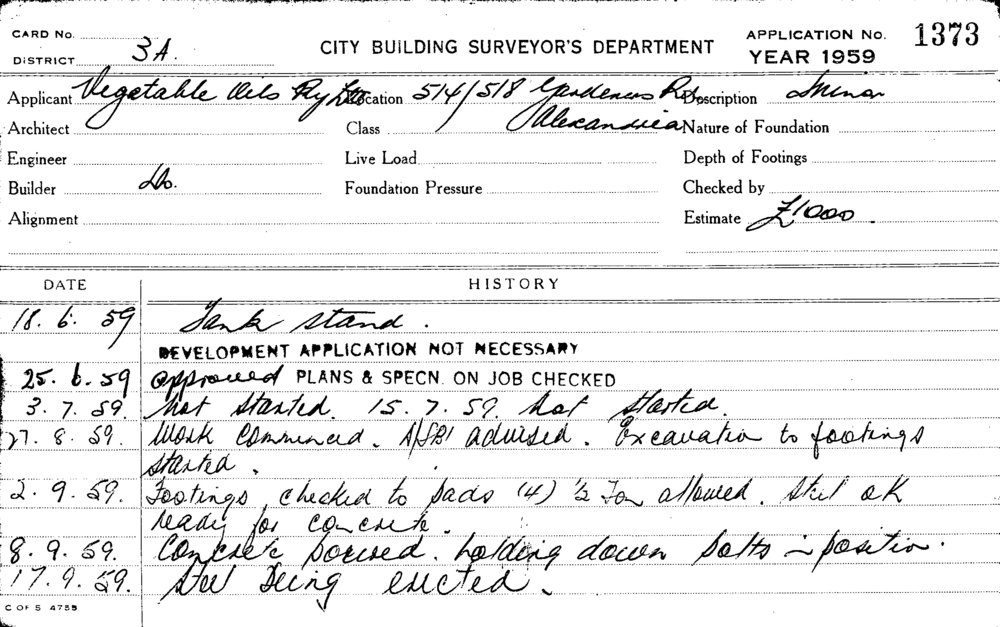 CARD No.
DISTRICT 3A.
CITY BUILDING SURVEYOR'S DEPARTMENT
APPLICATION No. 1373
YEAR 1959
Applicant Vegetable Oils Pty Ltd Location 514/518 Gardeners Rd. Description Minor
Architect Class Alexandria Nature of Foundation
Engineer Live Load Depth of Footings
Builder Do. Foundation Pressure Checked by
Alignment Estimate £1000.
DATE HISTORY
18. 6. 59 Tank stand.
DEVELOPMENT APPLICATION NOT NECESSARY
25. 6. 59 approved PLANS & SPECN. ON JOB CHECKED
3. 7. 59. Not started. 15. 7. 59. Not started.
27. 8. 59. Work commenced. A/SBI advised. Excavation to footings
started.
2. 9. 59. Footings checked to pads (4) ½ Ton allowed. Steel OK
ready for concrete.
8. 9. 59. Concrete poured. holding down bolts in position.
17. 9. 59. Steel being erected.
C OF S 4755